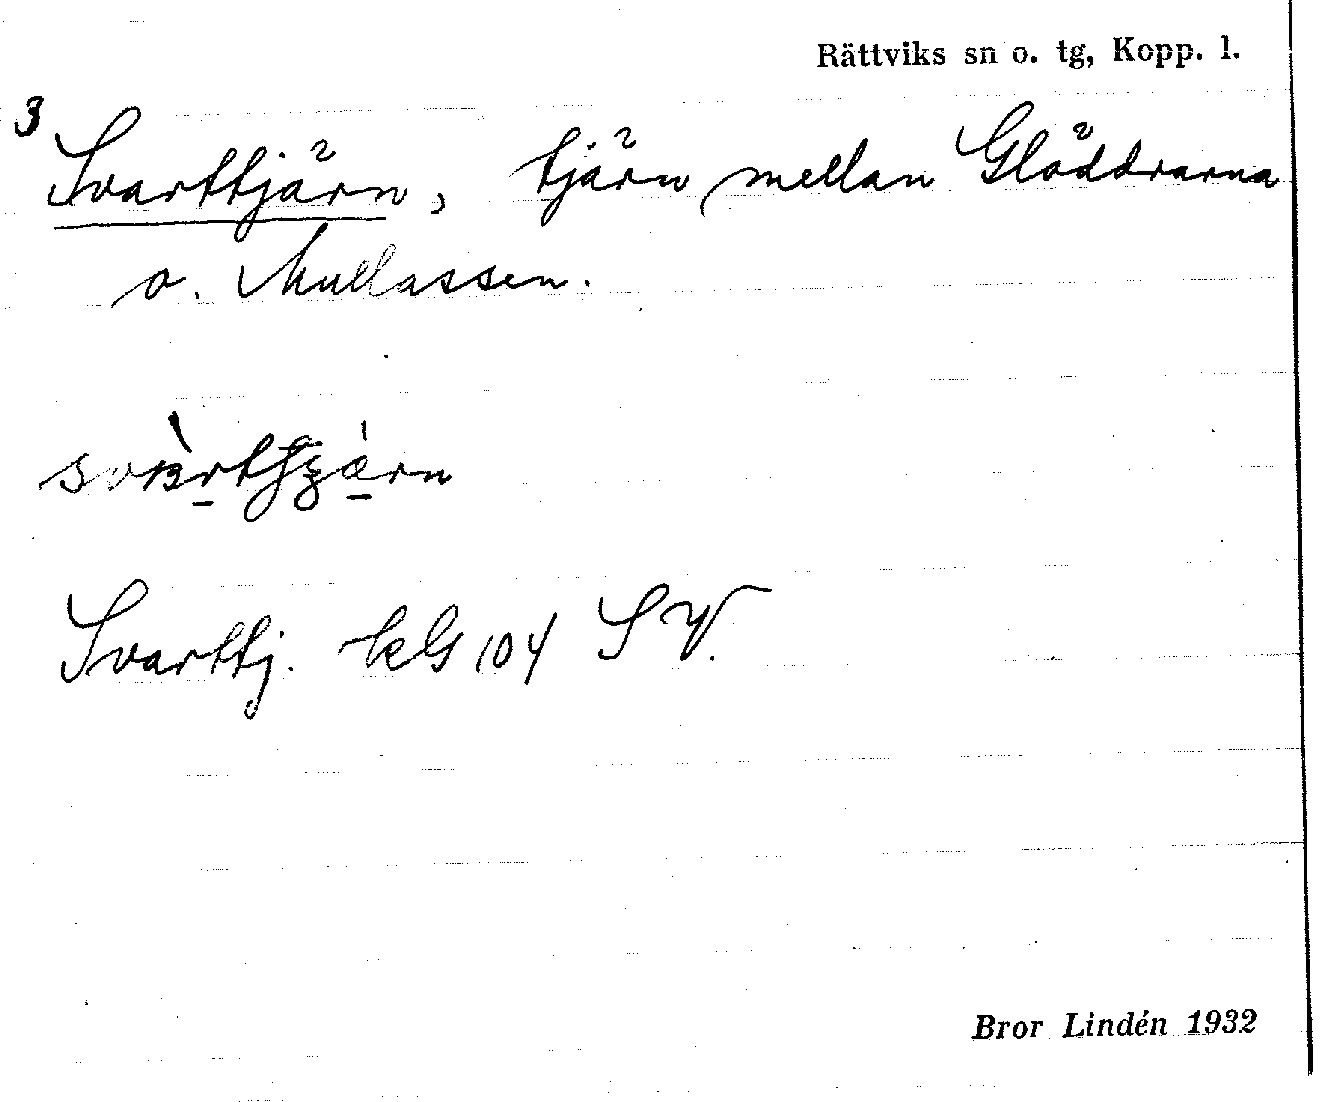 Rättviks sn o. tg, Kopp. l.
3
Svarttjärn, tjärn mellan Glöddrarna
o. Mullassen.
Svarttj. kbl 104 SV.
Bror Lindén 1932